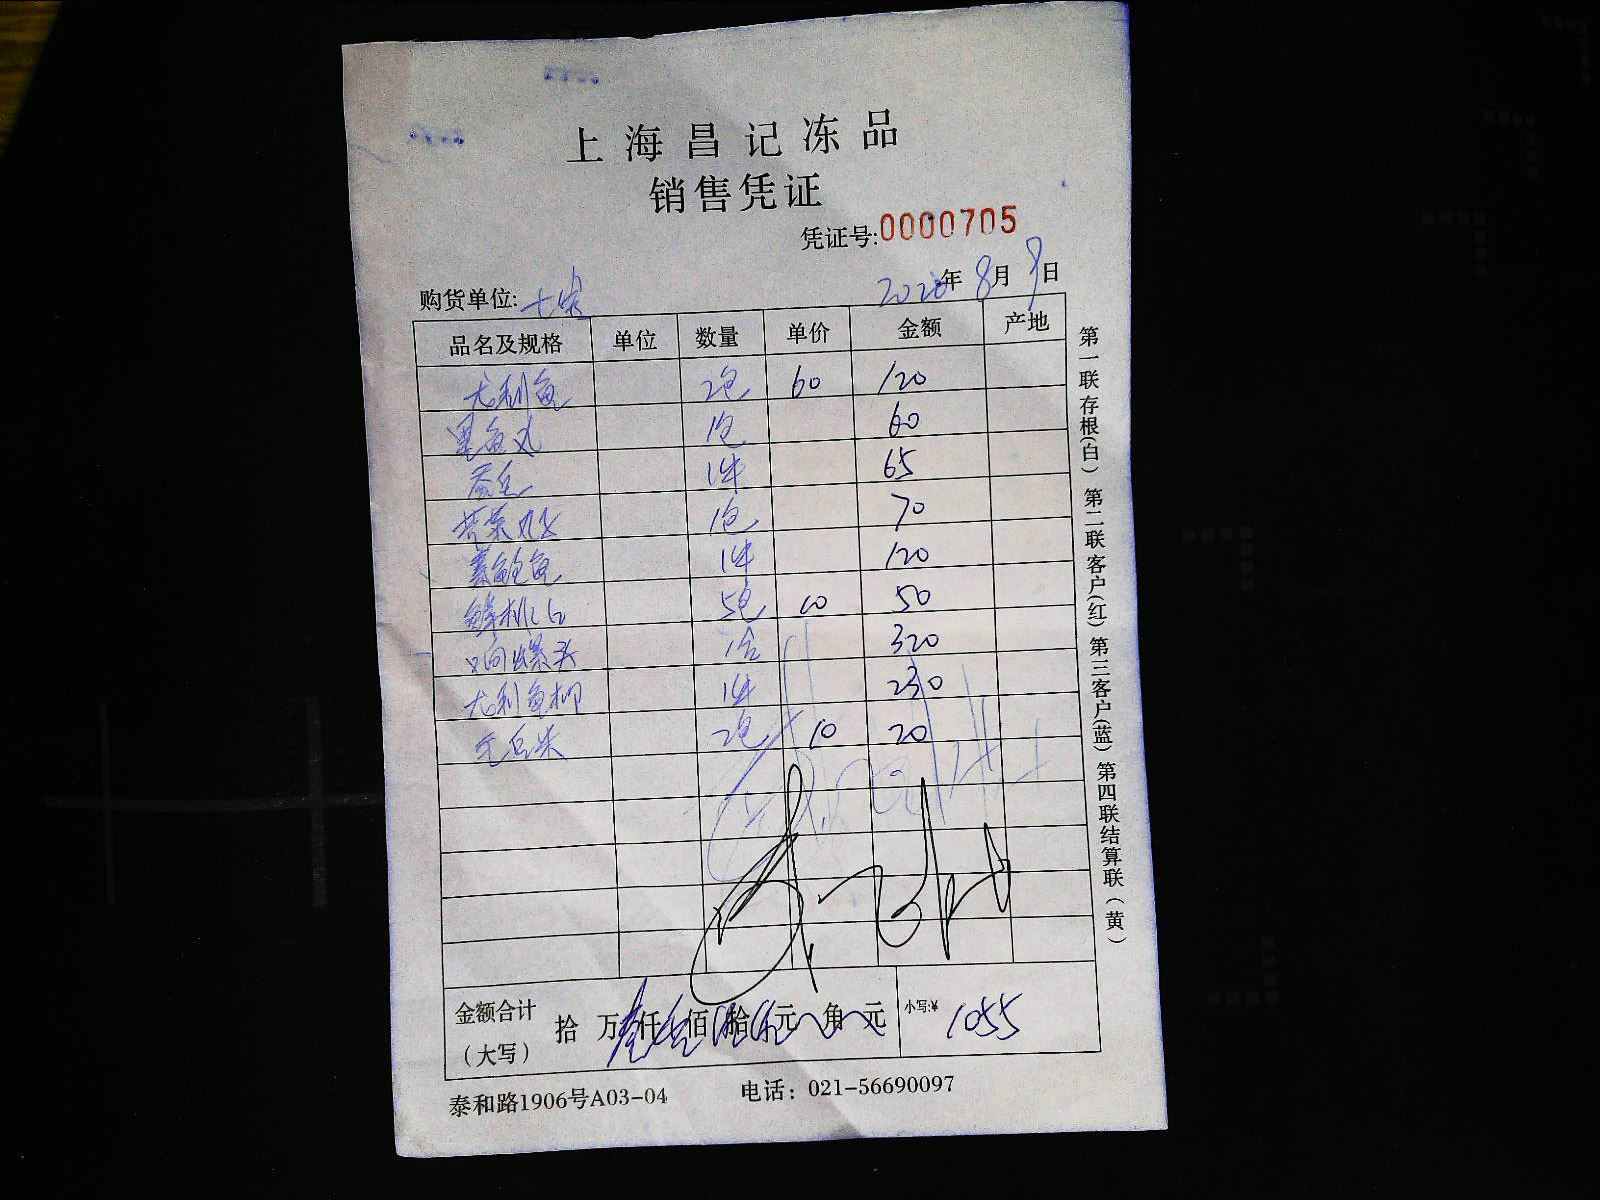 上海昌记冻品
销售凭证
凭证号:0000705
年 8月 9日
购货单位:
品名及规格 单位 数量 单价 金额 产地
尤利鱼 2包 60 120
黑鱼丸 1包 60
1件 65
荠菜丸子 1包 70
鲍鱼 1件 120
5包 10 50
响螺头 1合 320
尤利鱼柳 1件 230
毛豆米 2包 10 20
金额合计
(大写) 拾 万 壹仟 零佰 伍拾 伍元 角 元 小写:¥ 1055
泰和路1906号A03-04 电话: 021-56690097
第一联存根(白) 第二联客户(红) 第三客户(蓝) 第四联结算联(黄)